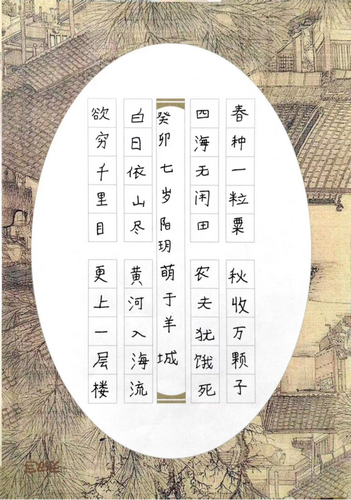 春种一粒粟
秋收万颗子
四海无闲田
农夫犹饿死
癸卯七岁阳玥萌于羊城
白日依山尽
黄河入海流
欲穷千里目
更上一层楼